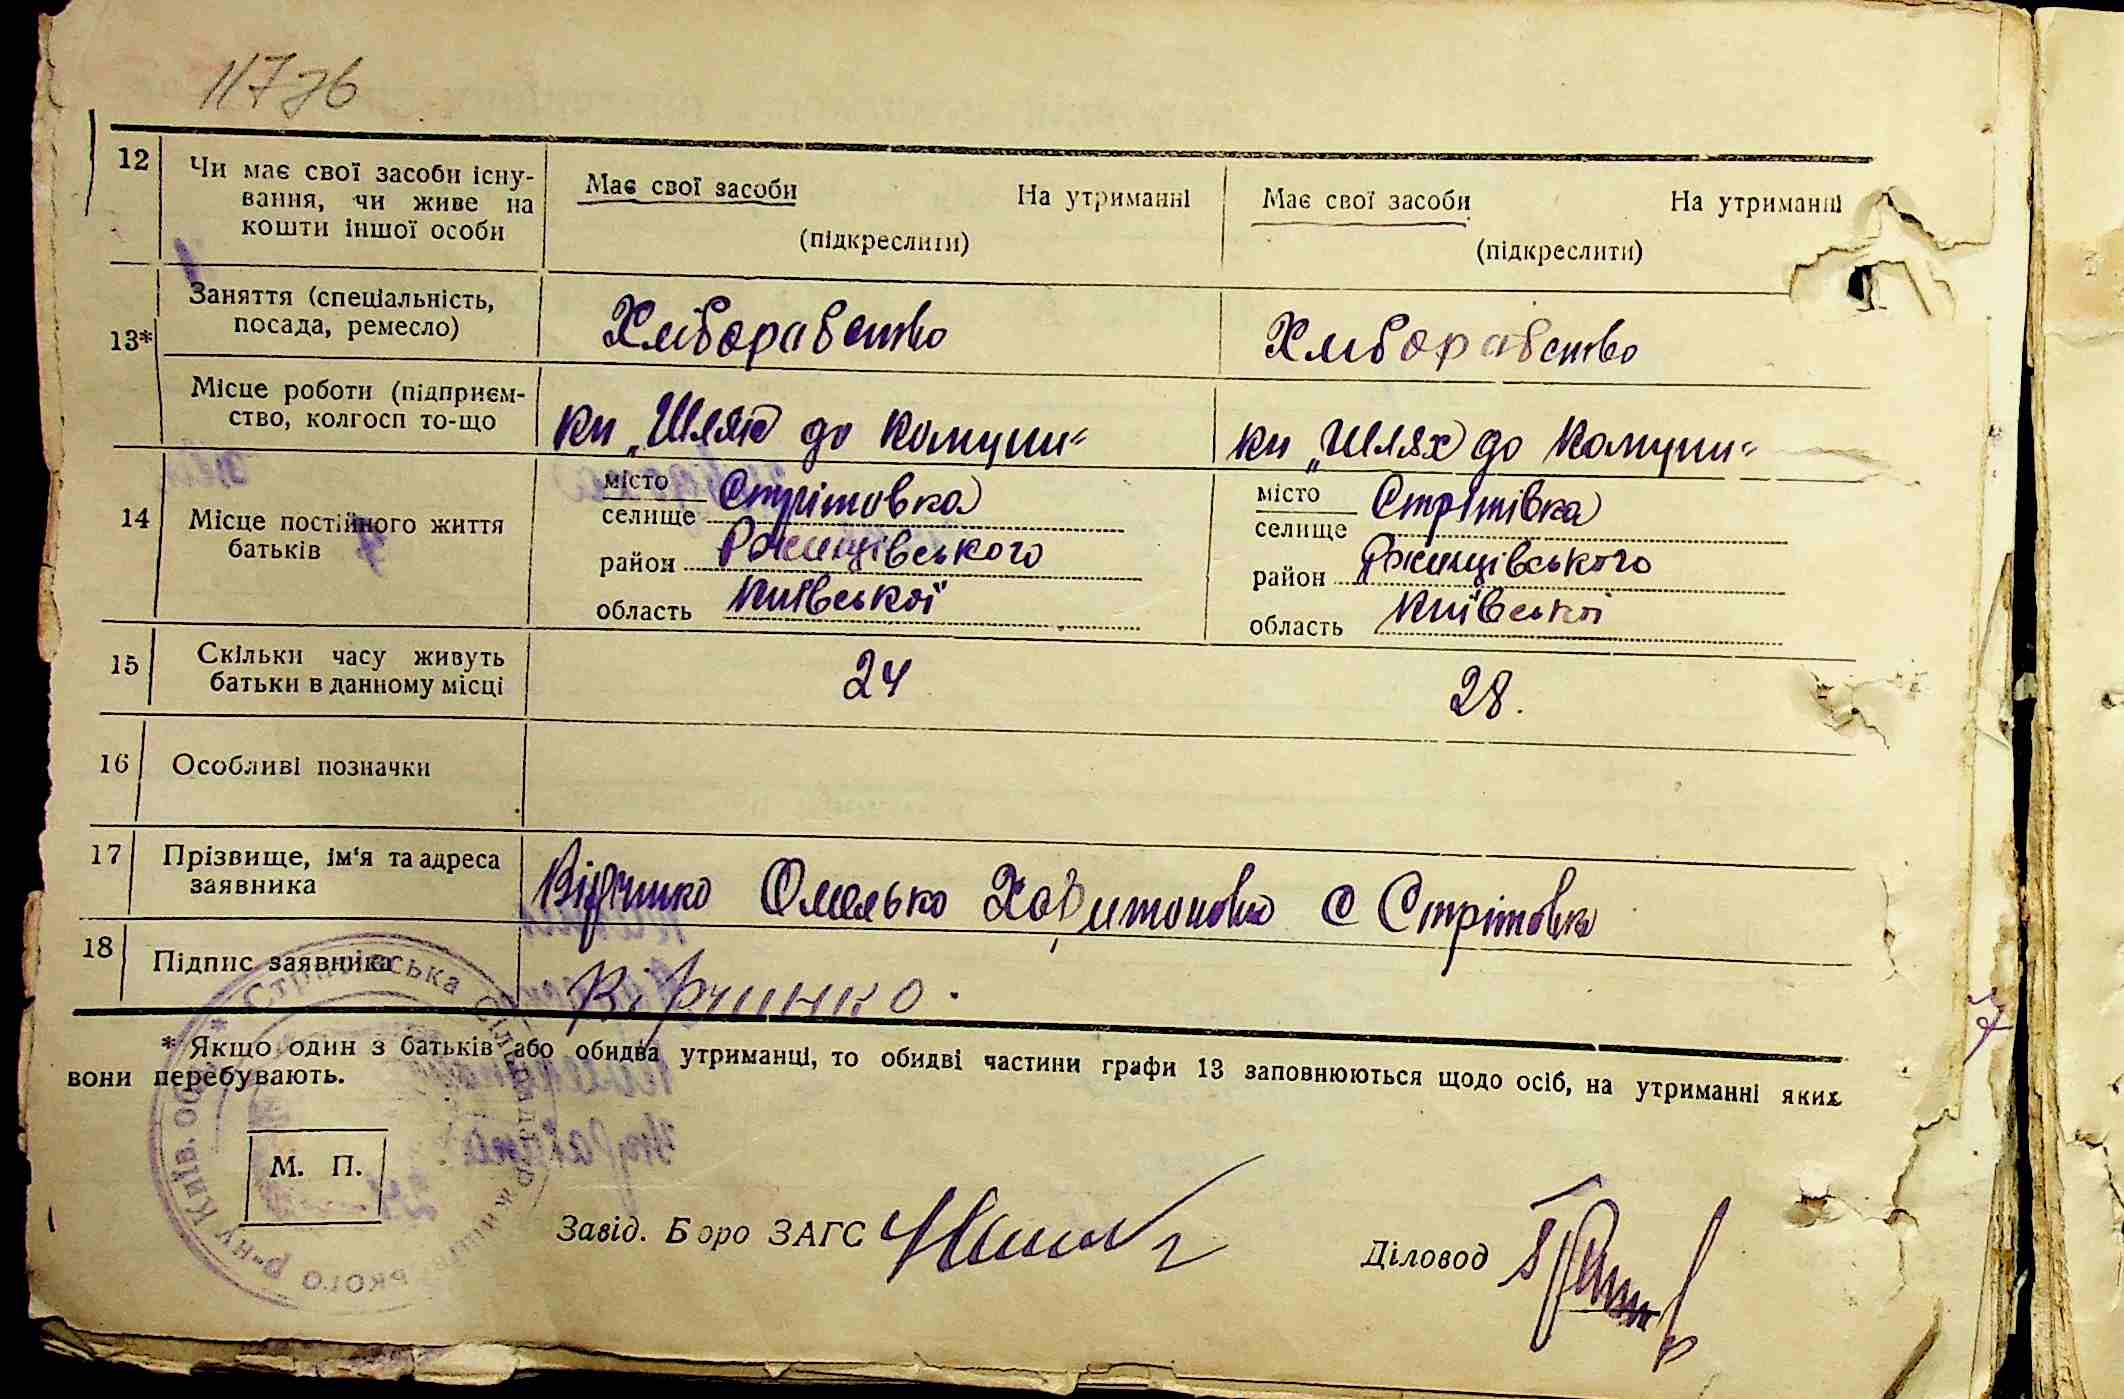 117зв
12 Чи має свої засоби існу-
вання, чи живе на
кошти іншої особи
Має свої засоби На утриманні
(підкреслити)
Має свої засоби На утриманні
(підкреслити)
13* Заняття (спеціальність,
посада, ремесло)
Хліборабство
Хліборабство
Місце роботи (підприєм-
ство, колгосп то-що
кп „Шлях до комуни"
кп „Шлях до комуни"
14 Місце постійного життя
батьків
місто
селище Стрітовка
район Ржищівського
область Київської
місто
селище Стрітівка
район Ржищівського
область Київської
15 Скільки часу живуть
батьки в данному місці
24
28.
16 Особливі позначки
17 Прізвище, ім'я та адреса
заявника
Омелько Харитонович с Стрітовка
18 Підпис заявника
* Якщо один з батьків або обидва утриманці, то обидві частини графи 13 заповнюються щодо осіб, на утриманні яких
вони перебувають.
М. П.
Завід. Бюро ЗАГС
Діловод